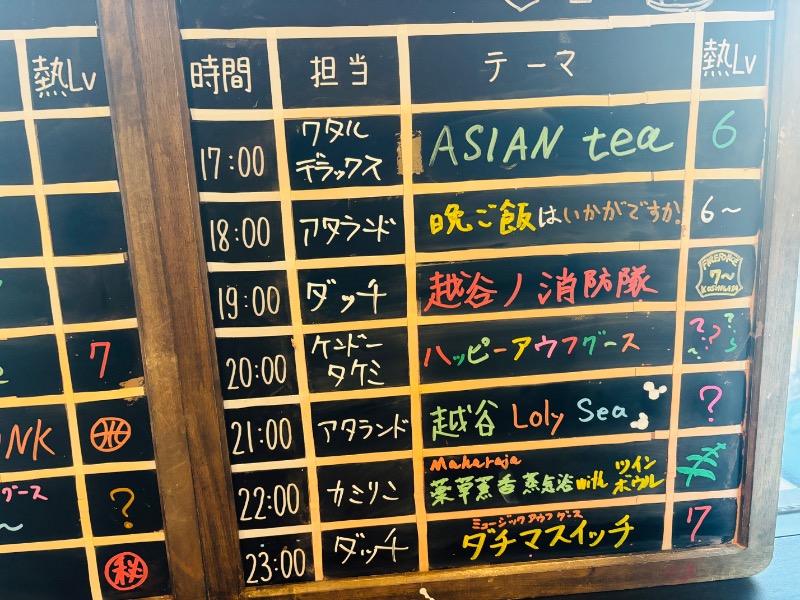 熱Lv
7
NK
グース
?
~
秘
時間 担当 テーマ 熱Lv
17:00 ワタル
デラックス ASIAN tea 6
18:00 アタランド 晩ご飯はいかがですか。 6~
19:00 ダッチ 越谷ノ消防隊 7~
20:00 ケンドー
タケミ ハッピーアウフグース ????
21:00 アタランド 越谷 Loly Sea ?
22:00 カミリこ Maharaja
薬草薫香 蒸気浴 with ツイン
ボウル
23:00 ダッチ ミュージックアウフグース
ダチマスイッチ 7